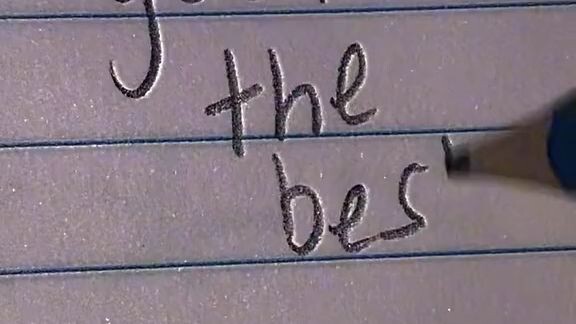 the
bes